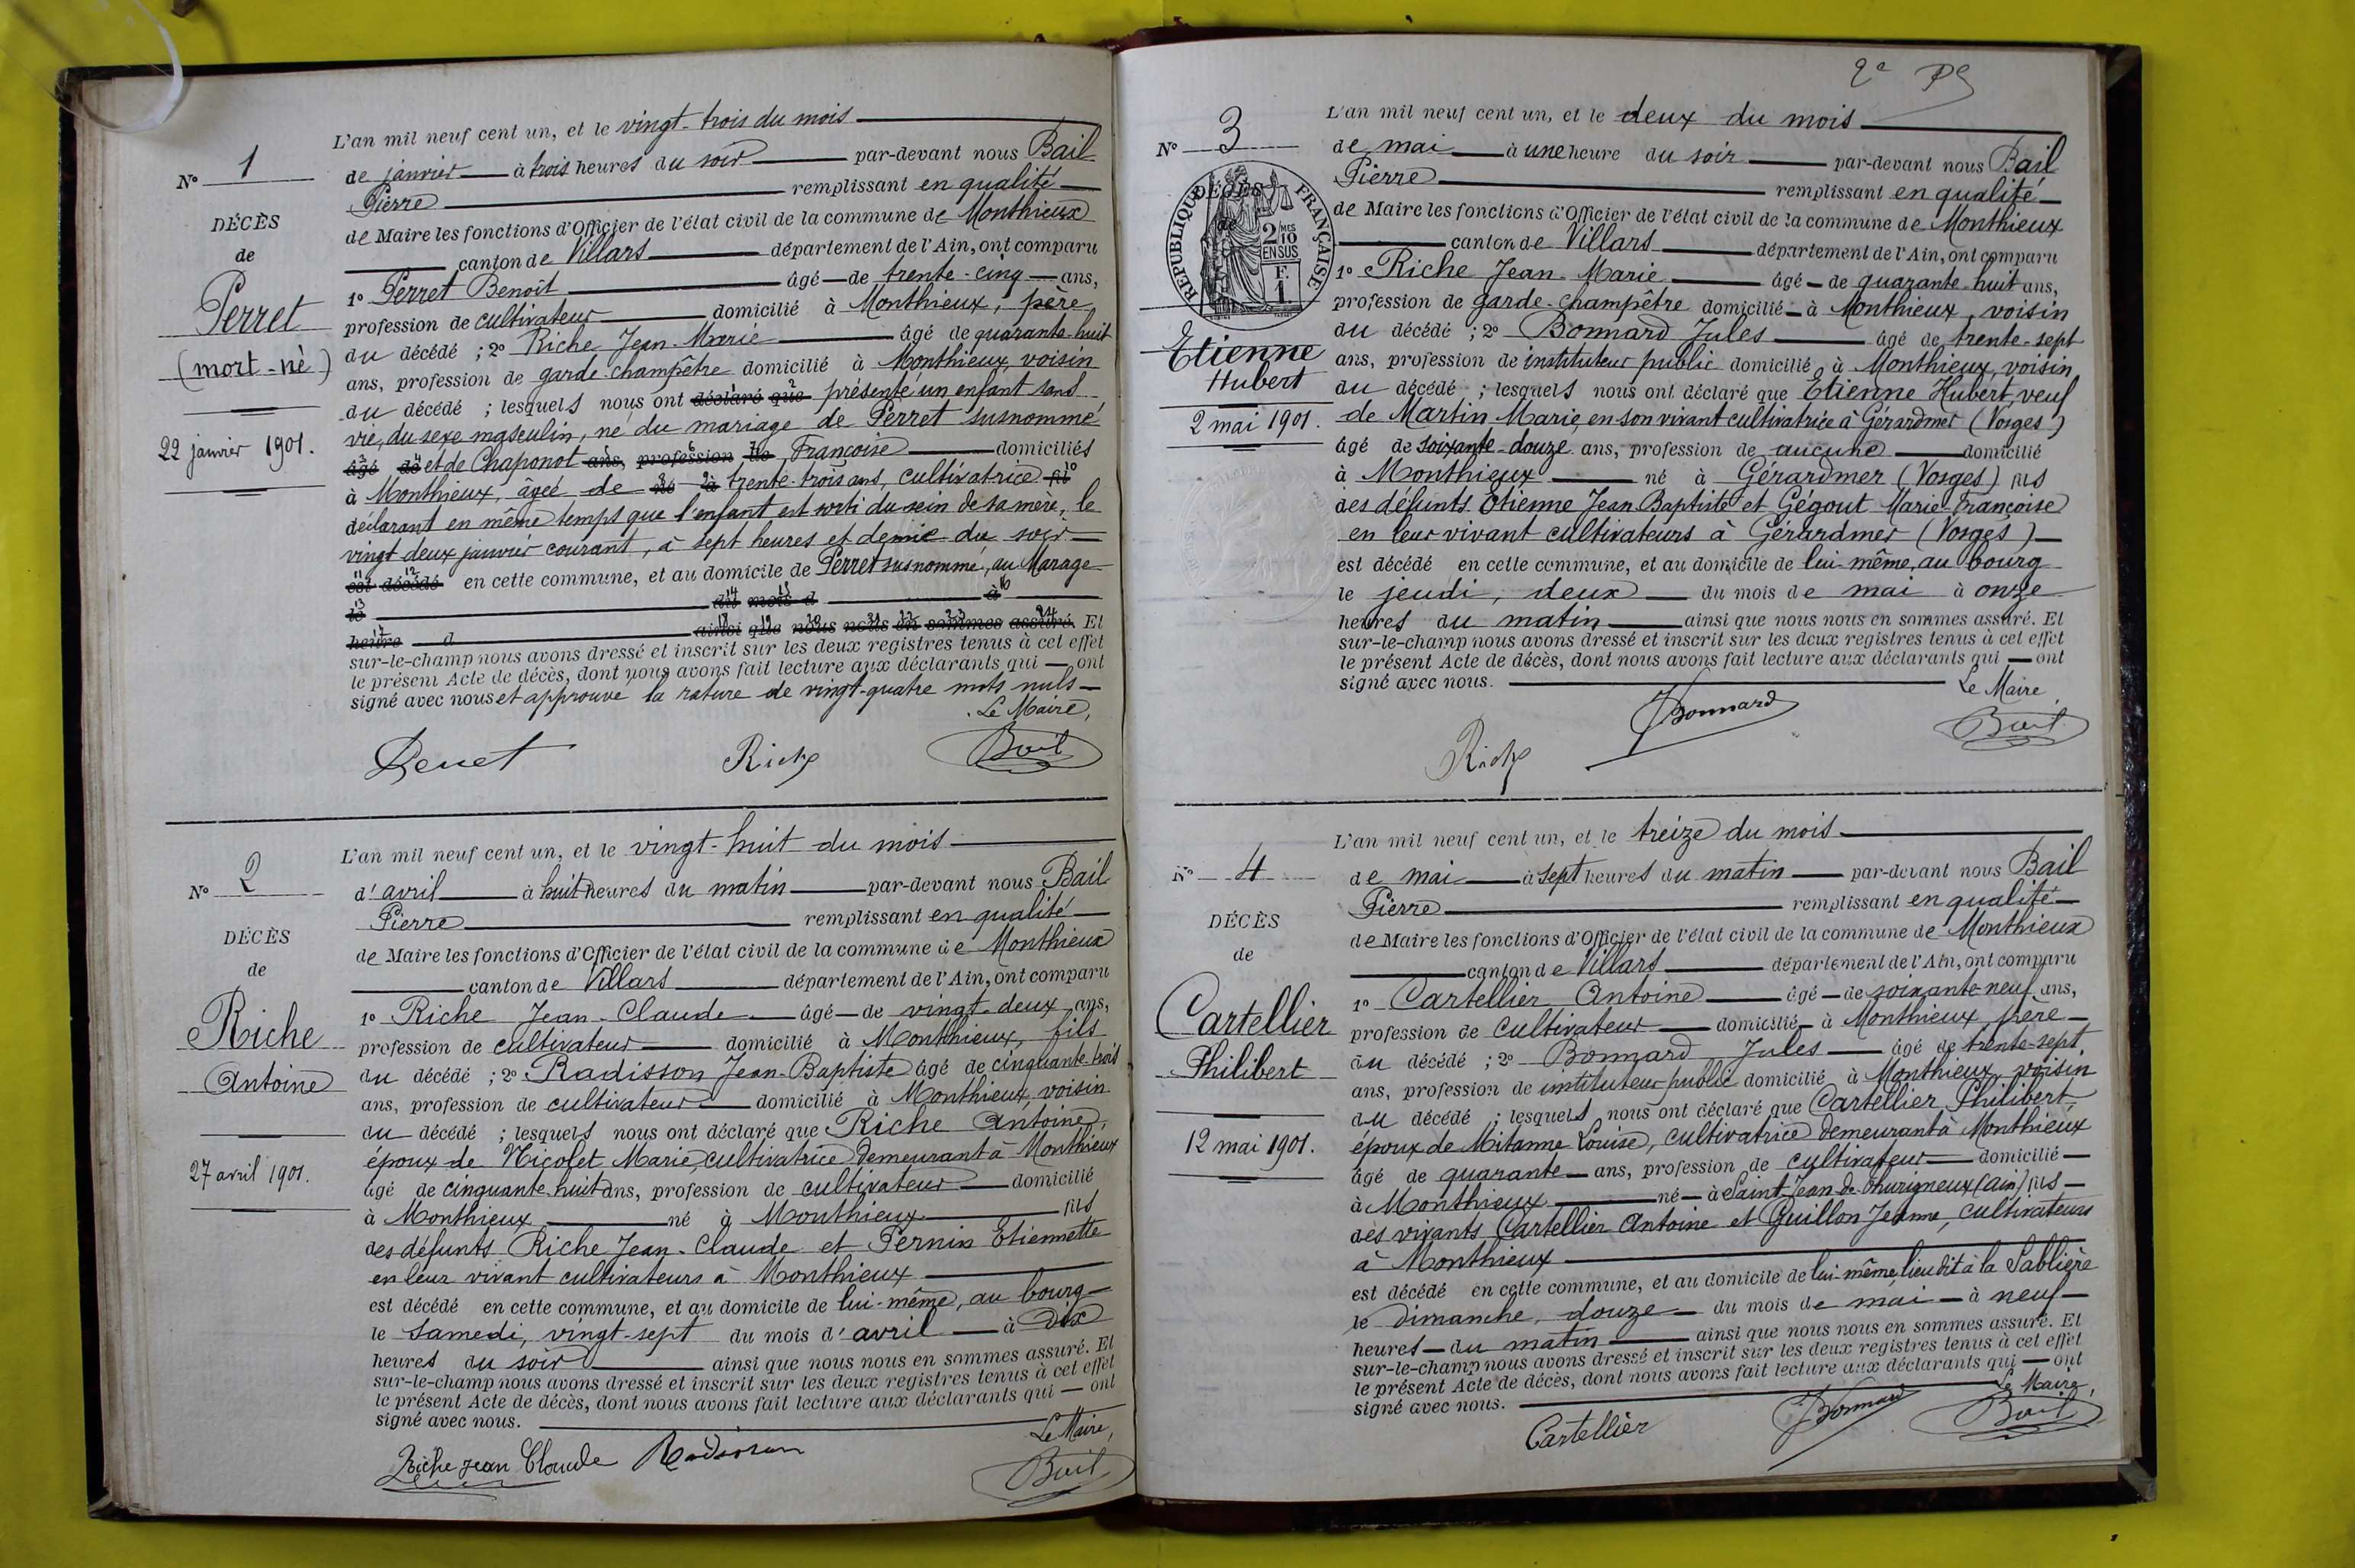 N° 1
DÉCÈS
de
Perret
(mort-né)
22 janvier 1901.
L'an mil neuf cent un, et le vingt-trois du mois
de janvier à trois heures du soir par-devant nous Bail
Pierre remplissant en qualité
de Maire les fonctions d'Officier de l'état civil de la commune de Monthieux
canton de Villars département de l'Ain, ont comparu
1° Perret Benoît âgé de trente-cinq ans,
profession de cultivateur domicilié à Monthieux, père
du décédé ; 2° Riche Jean-Marie âgé de quarante-huit
ans, profession de garde-champêtre domicilié à Monthieux, voisin
du décédé ; lesquels nous ont déclaré que présenté un enfant sans
vie, du sexe masculin, né du mariage de Perret susnommé
âgé de et de Chaponot ans, profession de Françoise domiciliés
à Monthieux, âgée de né à trente-trois ans, cultivatrice fil
déclarant en même temps que l'enfant est sorti du sein de sa mère, le
vingt deux janvier courant, à sept heures et demie du soir
est décédé en cette commune, et au domicile de Perret susnommé, au Marage
le du mois d à
heure d ainsi que nous nous en sommes assuré. Et
sur-le-champ nous avons dressé et inscrit sur les deux registres tenus à cet effet
le présent Acte de décès, dont nous avons fait lecture aux déclarants qui ont
signé avec nous et approuvé la rature de vingt-quatre mots nuls
Le Maire,
Perret Riche Bail
N° 2
DÉCÈS
de
Riche
Antoine
27 avril 1901.
L'an mil neuf cent un, et le vingt-huit du mois
d'avril à huit heures du matin par-devant nous Bail
Pierre remplissant en qualité
de Maire les fonctions d'Officier de l'état civil de la commune de Monthieux
canton de Villars département de l'Ain, ont comparu
1° Riche Jean-Claude âgé de vingt-deux ans,
profession de cultivateur domicilié à Monthieux, fils
du décédé ; 2° Radisson Jean-Baptiste âgé de cinquante-trois
ans, profession de cultivateur domicilié à Monthieux, voisin
du décédé ; lesquels nous ont déclaré que Riche Antoine,
époux de Nicolet Marie, cultivatrice demeurant à Monthieux
âgé de cinquante-huit ans, profession de cultivateur domicilié
à Monthieux né à Monthieux fils
des défunts Riche Jean-Claude et Pernin Etiennette
en leur vivant cultivateurs à Monthieux
est décédé en cette commune, et au domicile de lui-même, au bourg
le samedi, vingt-sept du mois d'avril à dix
heures du soir ainsi que nous nous en sommes assuré. Et
sur-le-champ nous avons dressé et inscrit sur les deux registres tenus à cet effet
le présent Acte de décès, dont nous avons fait lecture aux déclarants qui ont
signé avec nous.
Le Maire,
Riche Jean Claude Radisson Bail
2e
N° 3
DÉCÈS
de
RÉPUBLIQUE FRANÇAISE
2 MES
10
EN SUS
F.
1.
Etienne
Hubert
2 mai 1901.
L'an mil neuf cent un, et le deux du mois
de mai à une heure du soir par-devant nous Bail
Pierre remplissant en qualité
de Maire les fonctions d'Officier de l'état civil de la commune de Monthieux
canton de Villars département de l'Ain, ont comparu
1° Riche Jean-Marie âgé de quarante-huit ans,
profession de garde-champêtre domicilié à Monthieux, voisin
du décédé ; 2° Bonnard Jules âgé de trente-sept
ans, profession de instituteur public domicilié à Monthieux, voisin
du décédé ; lesquels nous ont déclaré que Etienne Hubert, veuf
de Martin Marie, en son vivant cultivatrice à Gérardmer (Vosges)
âgé de soixante-douze ans, profession de aucune domicilié
à Monthieux né à Gérardmer (Vosges) fils
des défunts Etienne Jean Baptiste et Gégout Marie-Françoise
en leur vivant cultivateurs à Gérardmer (Vosges)
est décédé en cette commune, et au domicile de lui-même, au bourg
le jeudi, deux du mois de mai à onze
heures du matin ainsi que nous nous en sommes assuré. Et
sur-le-champ nous avons dressé et inscrit sur les deux registres tenus à cet effet
le présent Acte de décès, dont nous avons fait lecture aux déclarants qui ont
signé avec nous.
Le Maire
Riche Bonnard Bail
N° 4
DÉCÈS
de
Cartellier
Philibert
12 mai 1901.
L'an mil neuf cent un, et le treize du mois
de mai à sept heures du matin par-devant nous Bail
Pierre remplissant en qualité
de Maire les fonctions d'Officier de l'état civil de la commune de Monthieux
canton de Villars département de l'Ain, ont comparu
1° Cartellier Antoine âgé de soixante-neuf ans,
profession de cultivateur domicilié à Monthieux père
du décédé ; 2° Bonnard Jules âgé de trente-sept
ans, profession de instituteur public domicilié à Monthieux, voisin
du décédé ; lesquels nous ont déclaré que Cartellier Philibert
époux de Mitanne Louise, cultivatrice demeurant à Monthieux
âgé de quarante ans, profession de cultivateur domicilié
à Monthieux né à Saint Jean-de-Thurigneux (Ain) fils
des vivants Cartellier Antoine et Guillon Jeanne, cultivateurs
à Monthieux
est décédé en cette commune, et au domicile de lui-même, lieu dit à la Sablière
le dimanche, douze du mois de mai à neuf
heures du matin ainsi que nous nous en sommes assuré. Et
sur-le-champ nous avons dressé et inscrit sur les deux registres tenus à cet effet
le présent Acte de décès, dont nous avons fait lecture aux déclarants qui ont
signé avec nous.
Le Maire,
Cartellier Bonnard Bail